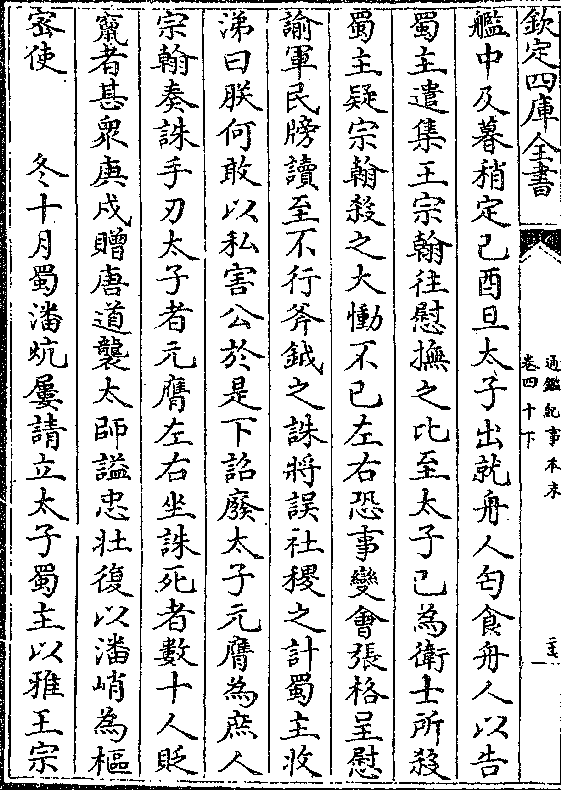 欽定四庫全書
通鑑紀事本末
卷四十下
艦中及暮稍定己酉旦太子出就舟人匄食舟人以告
蜀主遣集王宗翰往慰撫之比至太子已為衛士所殺
蜀主疑宗翰殺之大慟不已左右恐事變會張格呈慰
諭軍民牓讀至不行斧鉞之誅將誤社稷之計蜀主收
涕曰朕何敢以私害公於是下詔廢太子元膺為庶人
宗翰奏誅手刃太子者元膺左右坐誅死者數十人貶
竄者甚衆庚戌贈唐道襲太師諡忠壯復以潘峭為樞
密使　　冬十月蜀潘炕屢請立太子蜀主以雅王宗